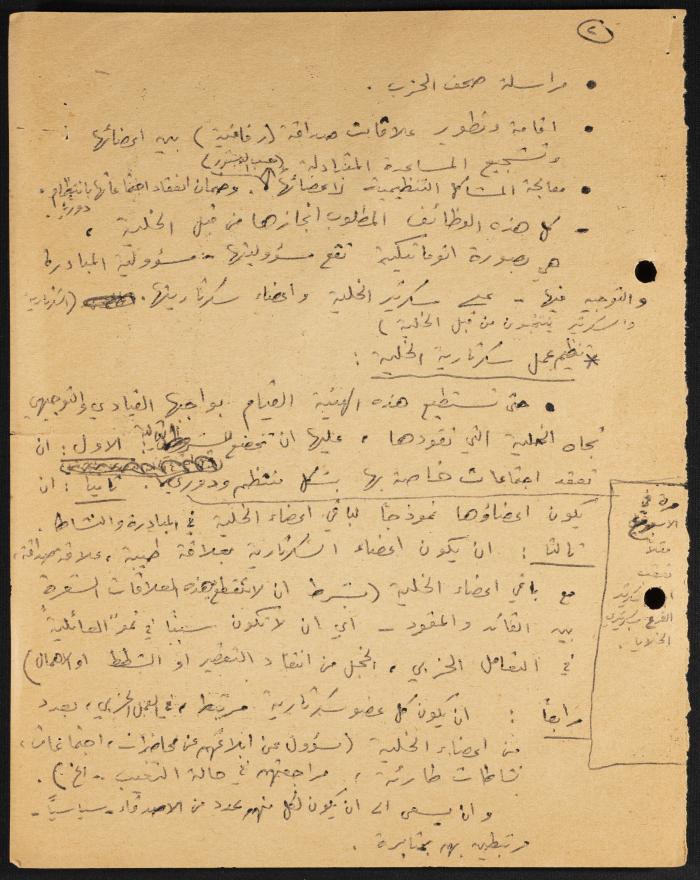 ٢
• مراسلة صحف الحزب .
• اقامة وتطوير علاقات صداقة (رفاقية) بين اعضائها :
وتشجيع المساعدة المتبادلة
• معالجة المشاكل التنظيمية لأعضائها . وضمان انعقاد اجتماعاتها بانتظام .
دوري
- كل هذه الوظائف المطلوب انجازها من قبل الخلية ،
هي بصورة اتوماتيكية تقع مسؤوليتها - مسؤولية المبادرة
والتوجيه فيها - على سكرتير الخلية واعضاء سكرتاريتها . (السكرتارية
والسكرتير ينتخبون من قبل الخلية)
* تنظيم عمل سكرتارية الخلية :
• حتى تستطيع هذه الهيئة القيام بواجبها القيادي والتوجيهي
تجاه الخلية التي تقودها ، عليها ان تخضع للشروط التالية : الاول : ان
تعقد اجتماعات خاصة بها بشكل منتظم ودوري . ثانياً : ان
يكون اعضاؤها نموذجاً لباقي اعضاء الخلية في المبادرة والنشاط .
ثالثا : ان يكون اعضاء السكرتارية بعلاقة طيبة ، علاقة صداقة ،
مع باقي اعضاء الخلية (بشرط ان لا تقطع هذه العلاقات الشعرة
بين القائد والمقود - اي ان لا تكون سبباً في نمو العائلية
في التعامل الحزبي ، الخجل من انتقاد التقصير او الشطط او الاهمال)
رابعاً : ان يكون كل عضو سكرتارية مرتبط ، في العمل الحزبي ، بعدد
من اعضاء الخلية (مسؤول عن ابلاغهم عن محاضرات ، اجتماعات ،
نشاطات طارئة ، مراجعتهم في حالة التغيب .. الخ) .
وان يسعى الى ان يكون لكل منهم عدد من الاصدقاء - سياسياً -
مرتبطين بهم بمثابرة .
مرة في
الاسبوع
مثلاً
سكرتير
الفرع سكرتيري
الخلايا .